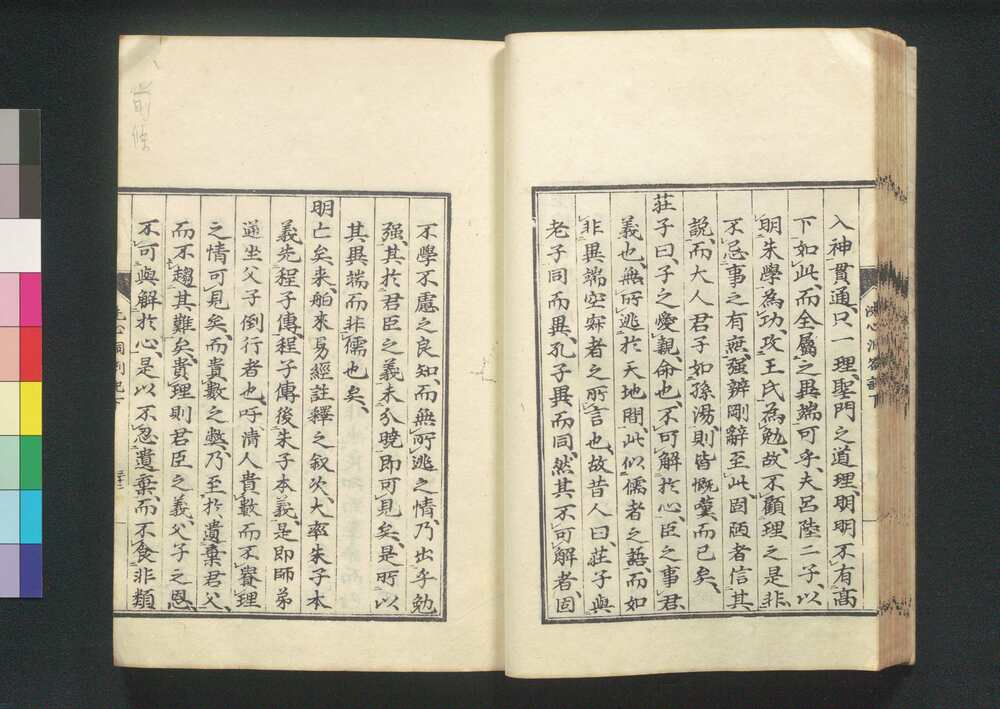 入神貫通、只一理、聖門之道理、明明不有高
下如此、而全屬之異端可乎、夫呂陸二子、以
明朱學為功、攻王氏為勉、故不顧理之是非、
不忌事之有無、强辨剛辭至此、固陋者信其
說、而大人君子如孫湯、則皆慨嘆而已矣、
莊子曰、子之愛親、命也、不可解於心、臣之事君、
義也、無所逃於天地間、此似儒者之語、而如
非異端空寂者之所言也、故昔人曰、莊子與
老子同而異、孔子異而同、然其不可解者、固
洗心洞劄記下
不學不慮之良知、而無所逃之情、乃出乎勉
强、其於君臣之義未分曉、即可見矣、是所以
其異端而非儒也矣、
明亡矣、來舶來易經註釋之叙次、大率朱子本
義先程子傳、程子傳後朱子本義、是即師弟
逆坐、父子倒行者也、吁、清人貴數而不貴理
之情可見矣、而貴數之弊、乃至於遺棄君父、
而不趨其難矣、貴理則君臣之義、父子之恩、
不可與解於心、是以不忍遺棄、而不食非類
前條